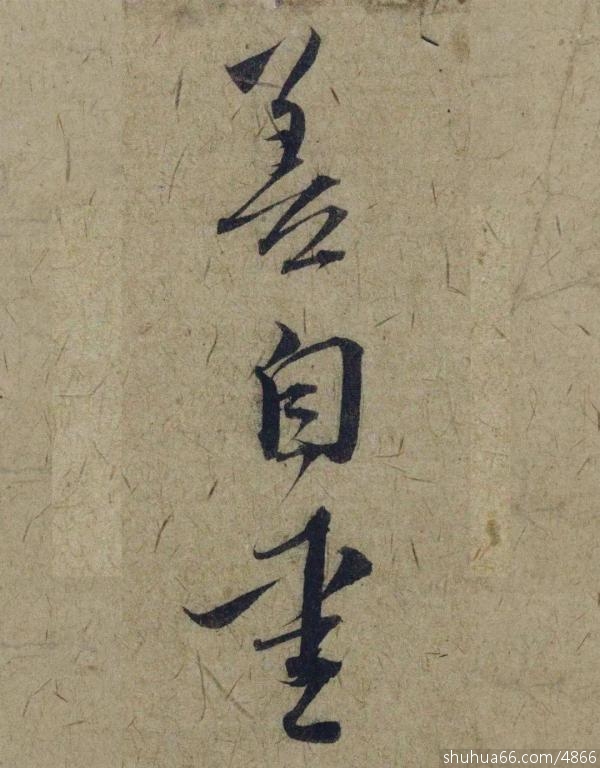 善自重
shuhua66.com/4866